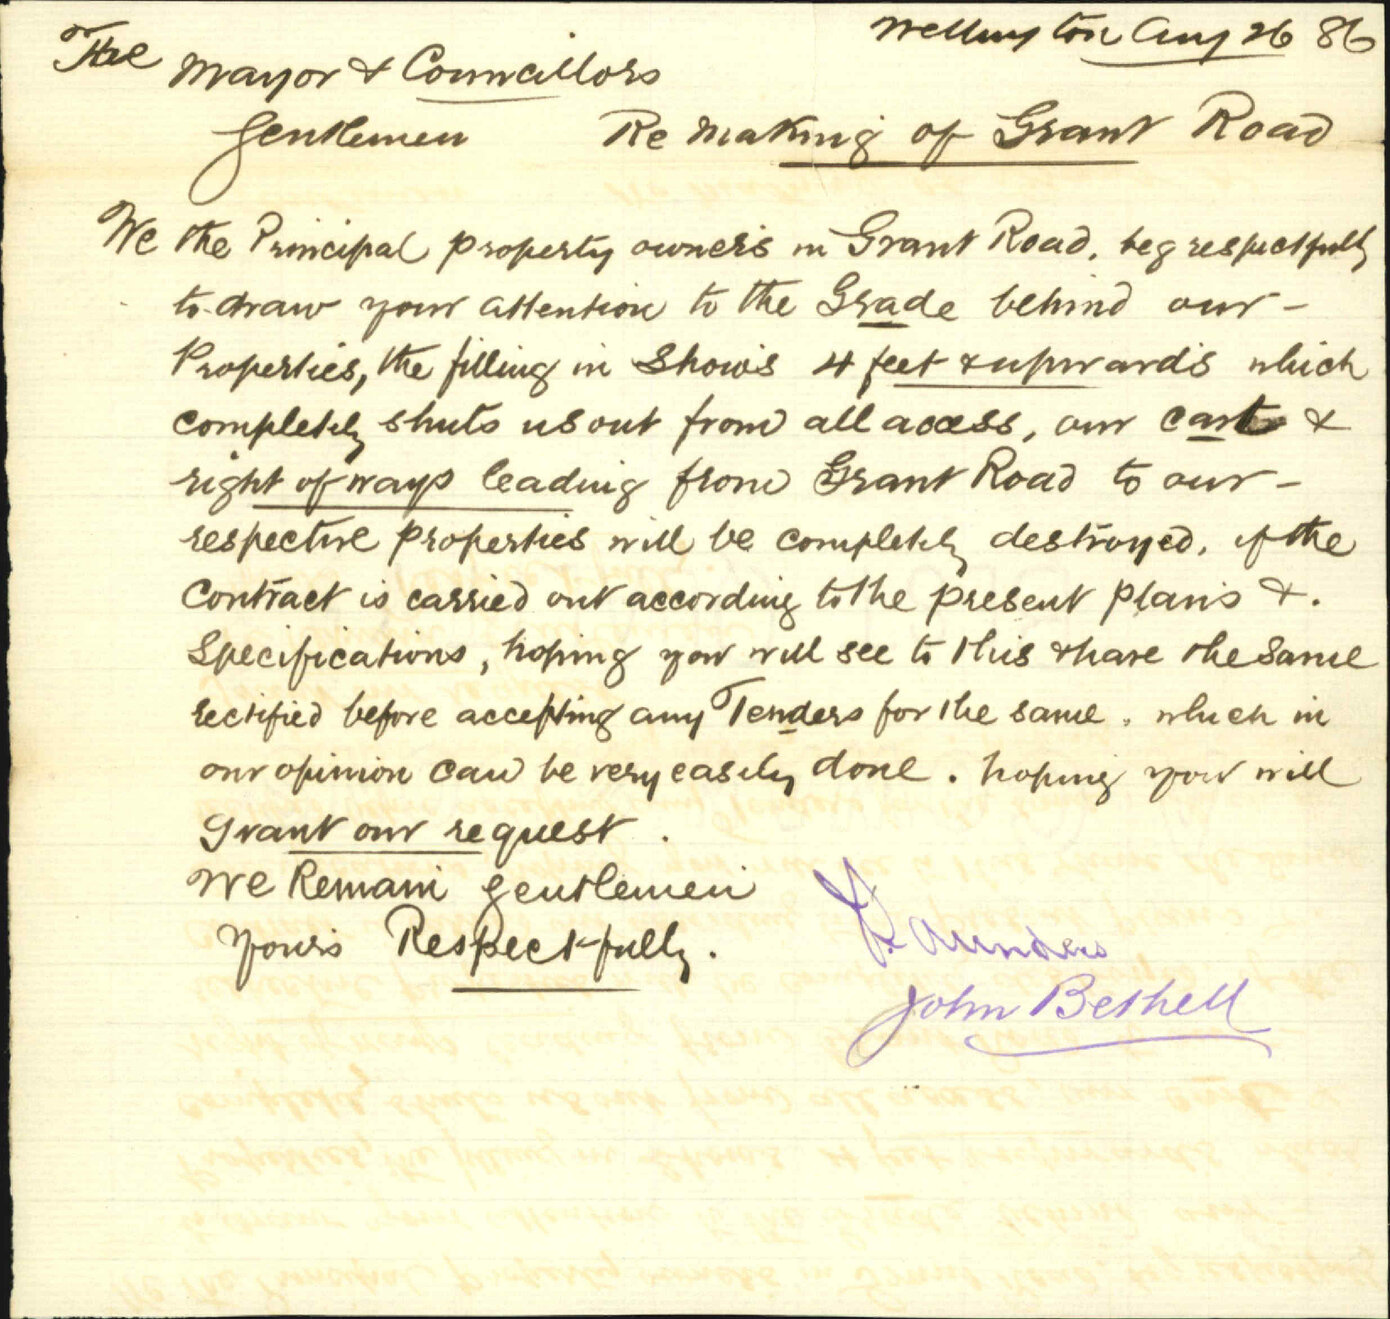 Wellington Aug 26 86
The Mayor & Councillors
Gentlemen Re Making of Grant Road
We the Principal property owners in Grant Road, beg respectfully
to draw your attention to the Grade behind our -
Properties, the filling in shows 4 feet & upwards which
completely shuts us out from all access, our cart &
right of ways leading from Grant Road to our -
respective properties will be completely destroyed, if the
Contract is carried out according to the present plans &.
Specifications, hoping you will see to this & have the same
rectified before accepting any Tenders for the same. which in
our opinion can be very easily done. hoping you will
grant our request.
We Remain Gentlemen
Yours Respectfully.
Saunders
John Bethell